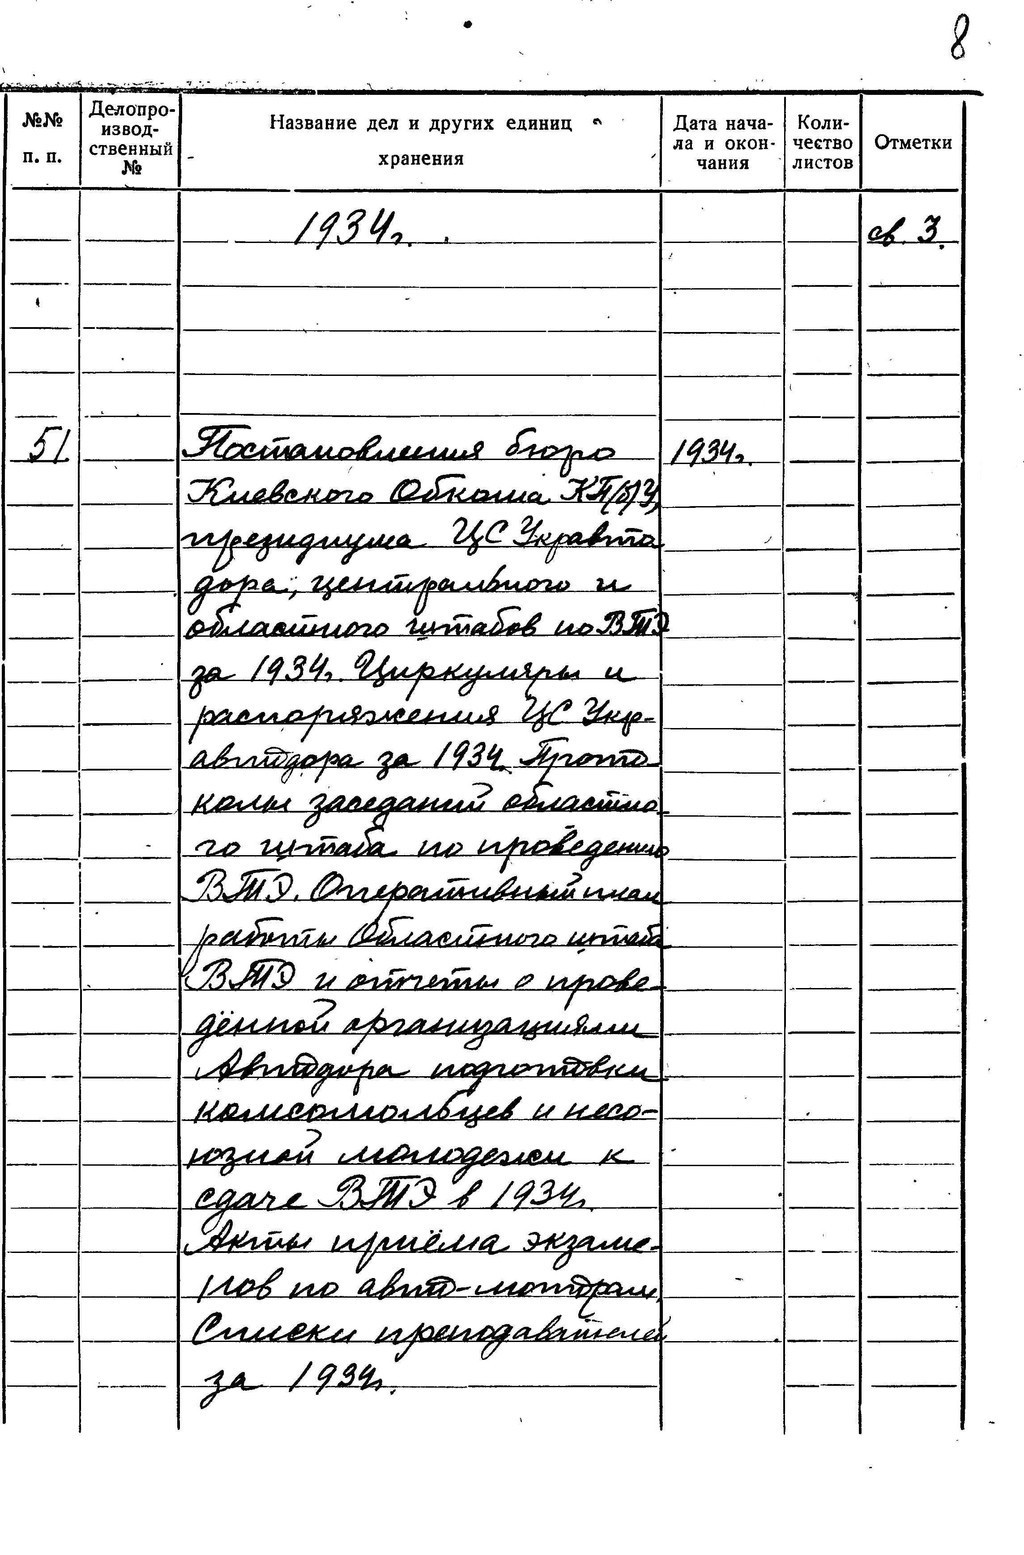 8
№№ п. п.
Делопроизвод-ственный №
Название дел и других единиц хранения
Дата начала и окончания
Количество листов
Отметки
1934г.
св. 3.
51.
Постановления бюро
1934г.
Киевского Обкома КП(б)У,
президиума ЦС Укравто
дора, центрального и
областного штабов по ВТЭ
за 1934г. Циркуляры и
распоряжения ЦС Укр-
автодора за 1934. Прото
колы заседаний областно
го штаба по проведению
ВТЭ. Оперативный план
работы Областного штаба
ВТЭ и отчеты о прове-
дённой организациями
Автодора подготовки
комсомольцев и несо-
юзной молодежи к
сдаче ВТЭ в 1934г.
Акты приёма экзаме-
нов по авто-моторам.
Списки преподавателей
за 1934г.